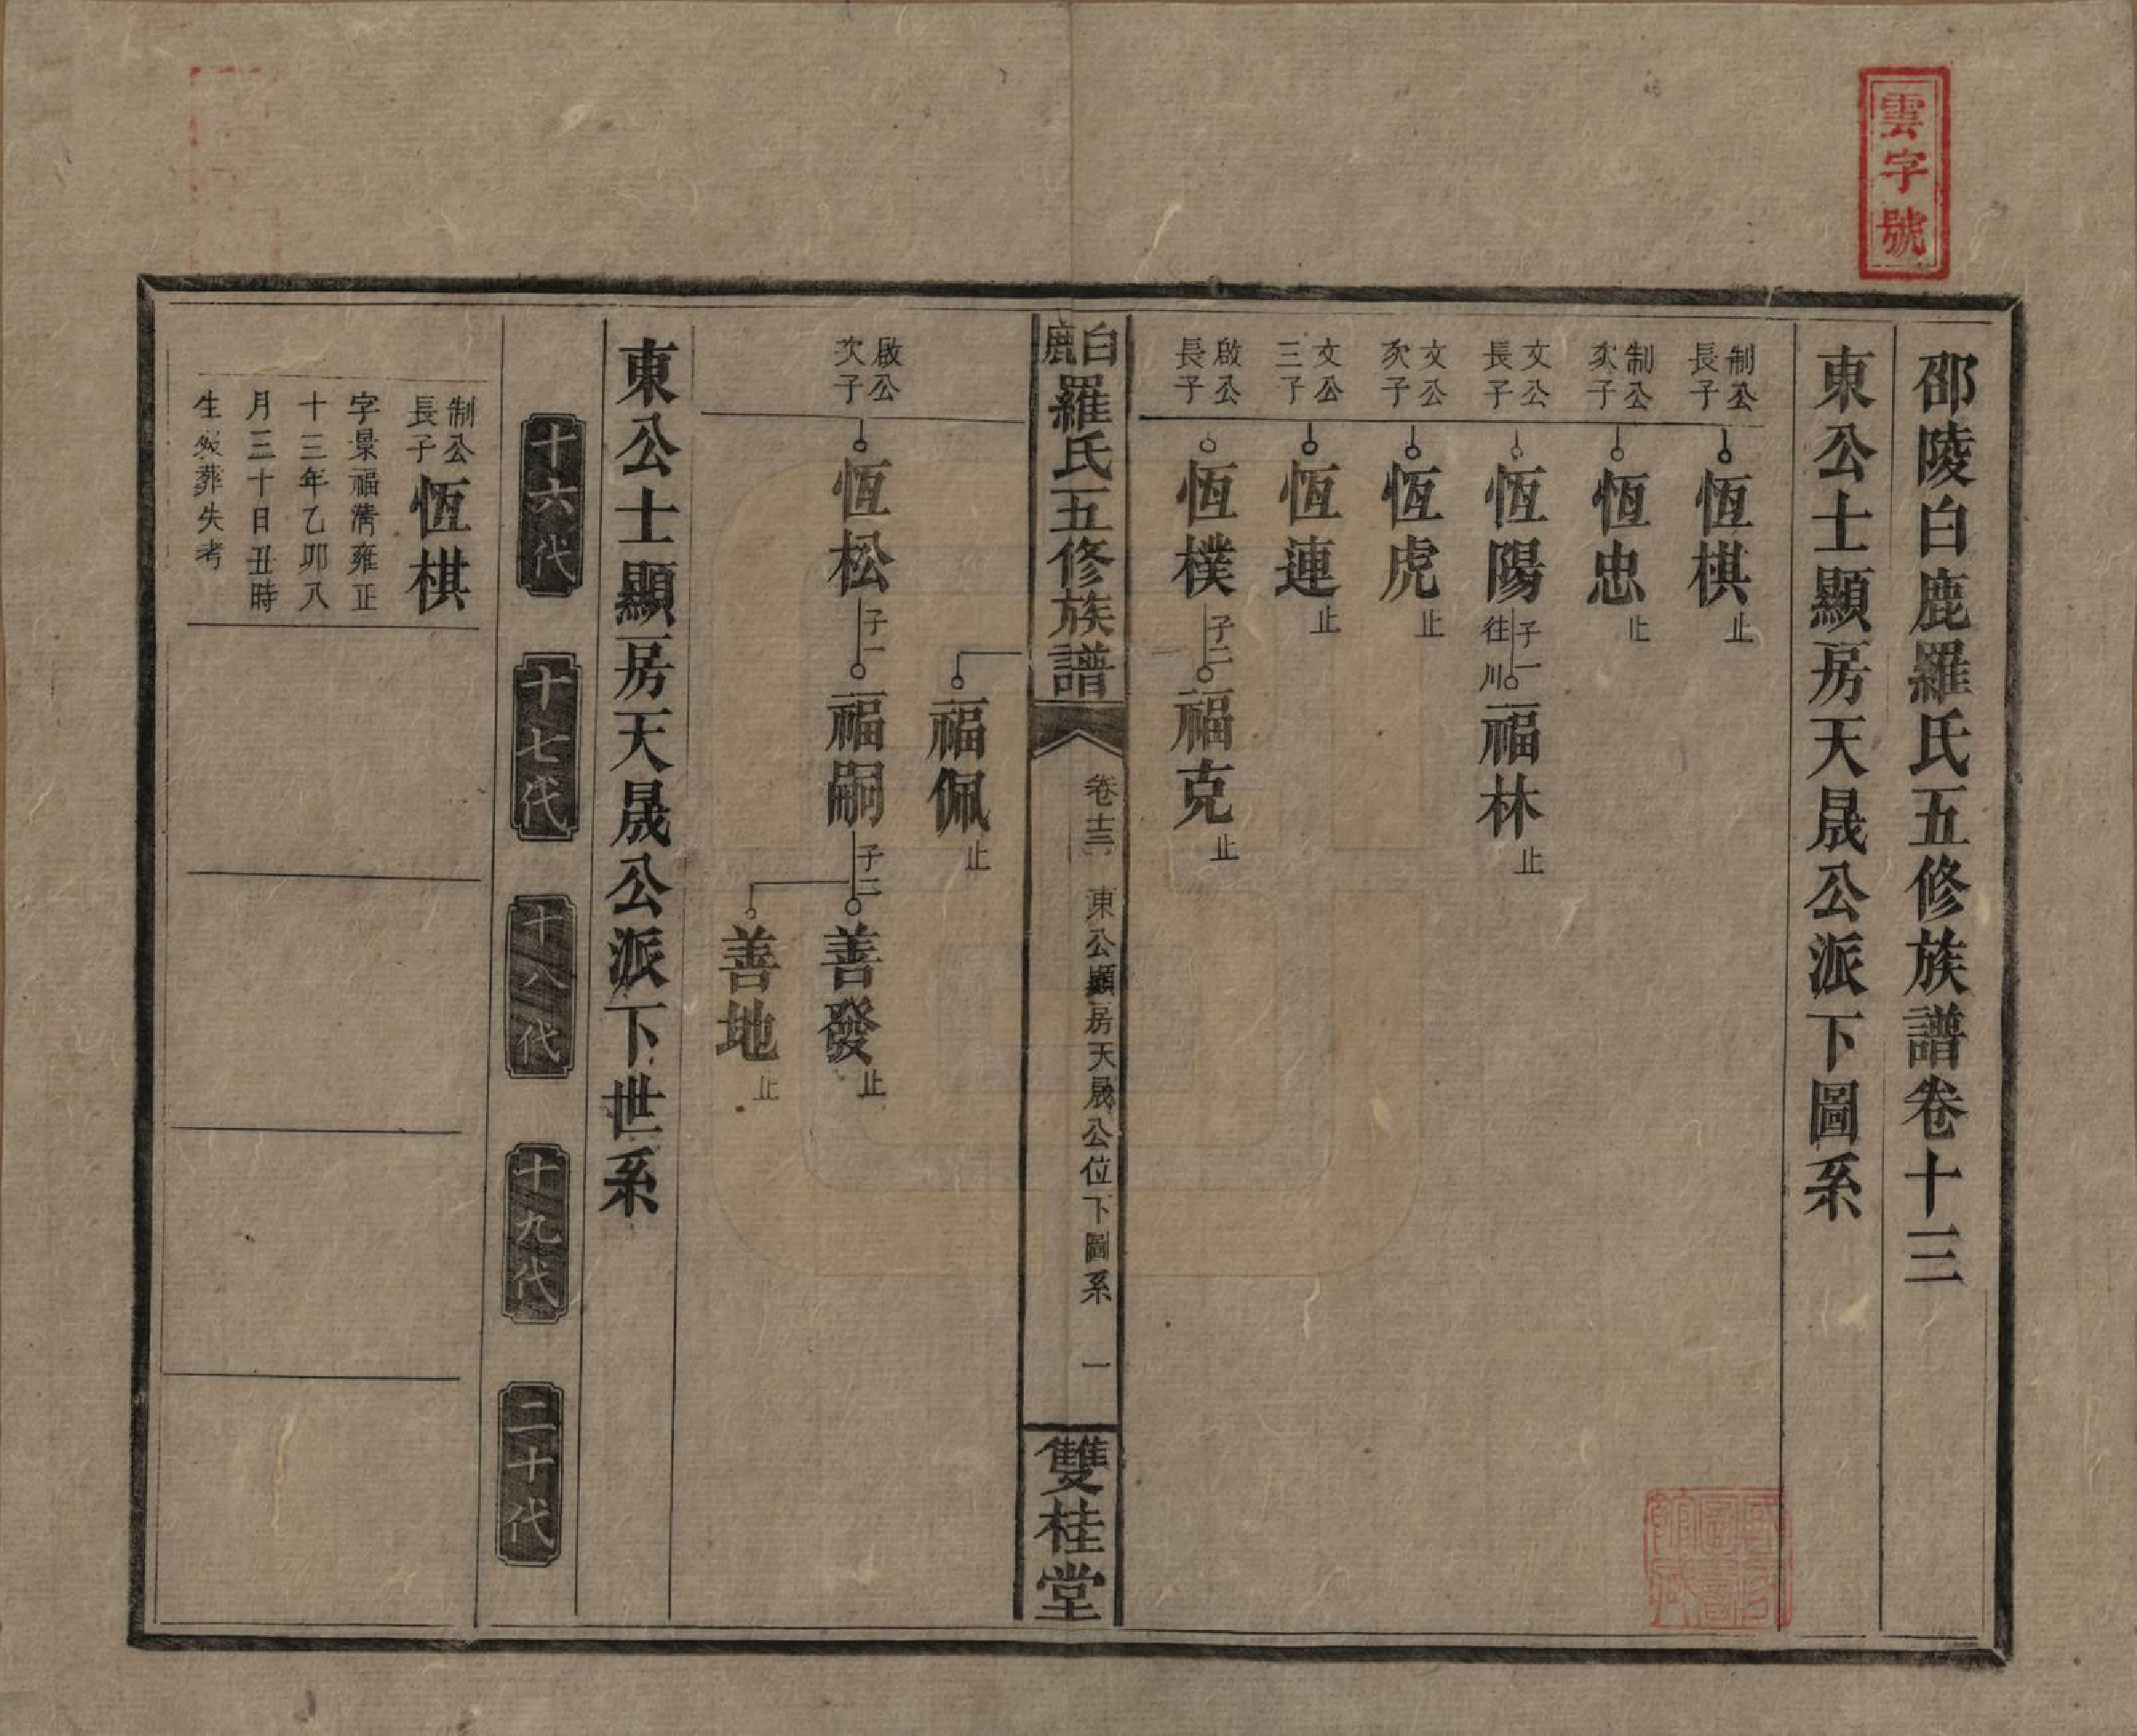 雲字號
邵陵白鹿羅氏五修族譜卷十三
東公士顯房天晟公派下圖系
制公長子
恆棋止
制公次子
恆忠止
文公長子
恆陽子一往川福林止
文公次子
恆虎止
文公三子
恆連止
啟公長子
恆樸子二福克止
白鹿羅氏五修族譜
卷十三 東公顯房天晟公位下圖系 一
雙桂堂
福佩止
啟公次子
恆松子一福嗣子二善發止
善地止
東公士顯房天晟公派下世系
十六代 十七代 十八代 十九代 二十代
制公長子恆棋
字景福清雍正
十三年乙卯八
月三十日丑時
生歿葬失考